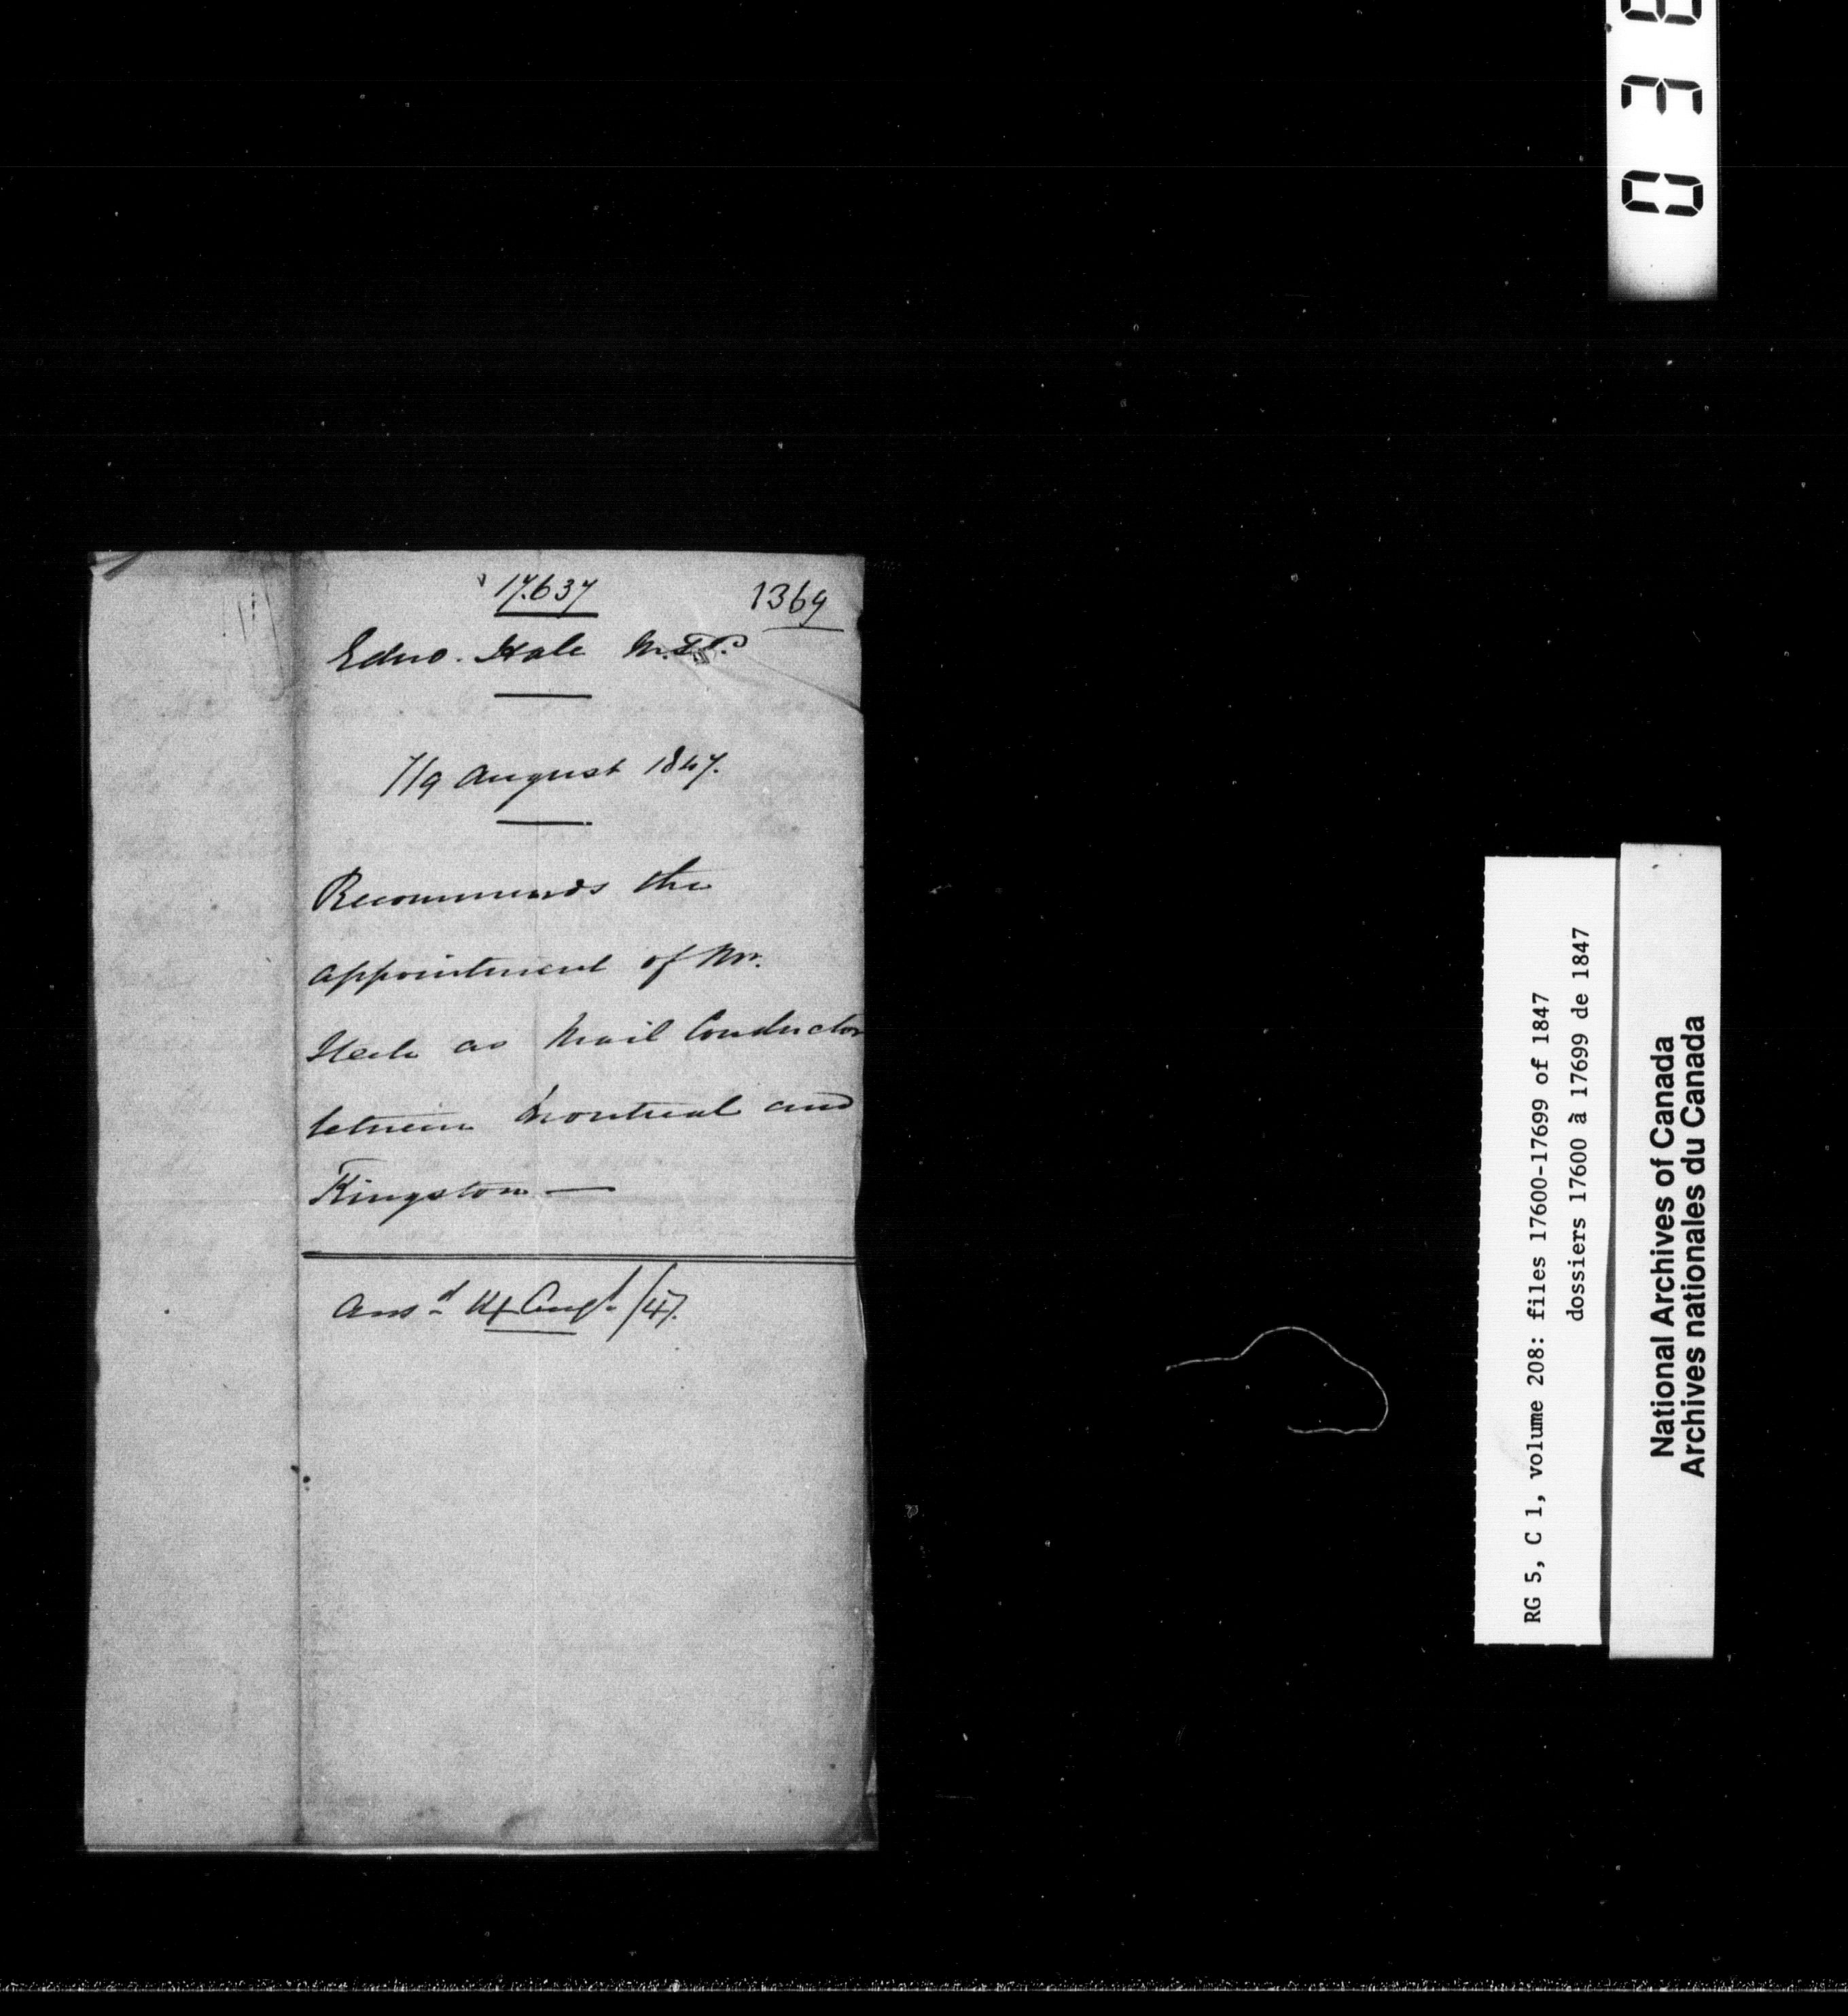 17.637
1369
Edwd. Hale M.P.P.
7/9 August 1847.
Recommends the
appointment of Mr.
as Mail Conductor
between Montreal and
Kingston —
Ansd 14 Augt /47.
RG 5, C 1, volume 208: files 17600-17699 of 1847
dossiers 17600 à 17699 de 1847
National Archives of Canada
Archives nationales du Canada